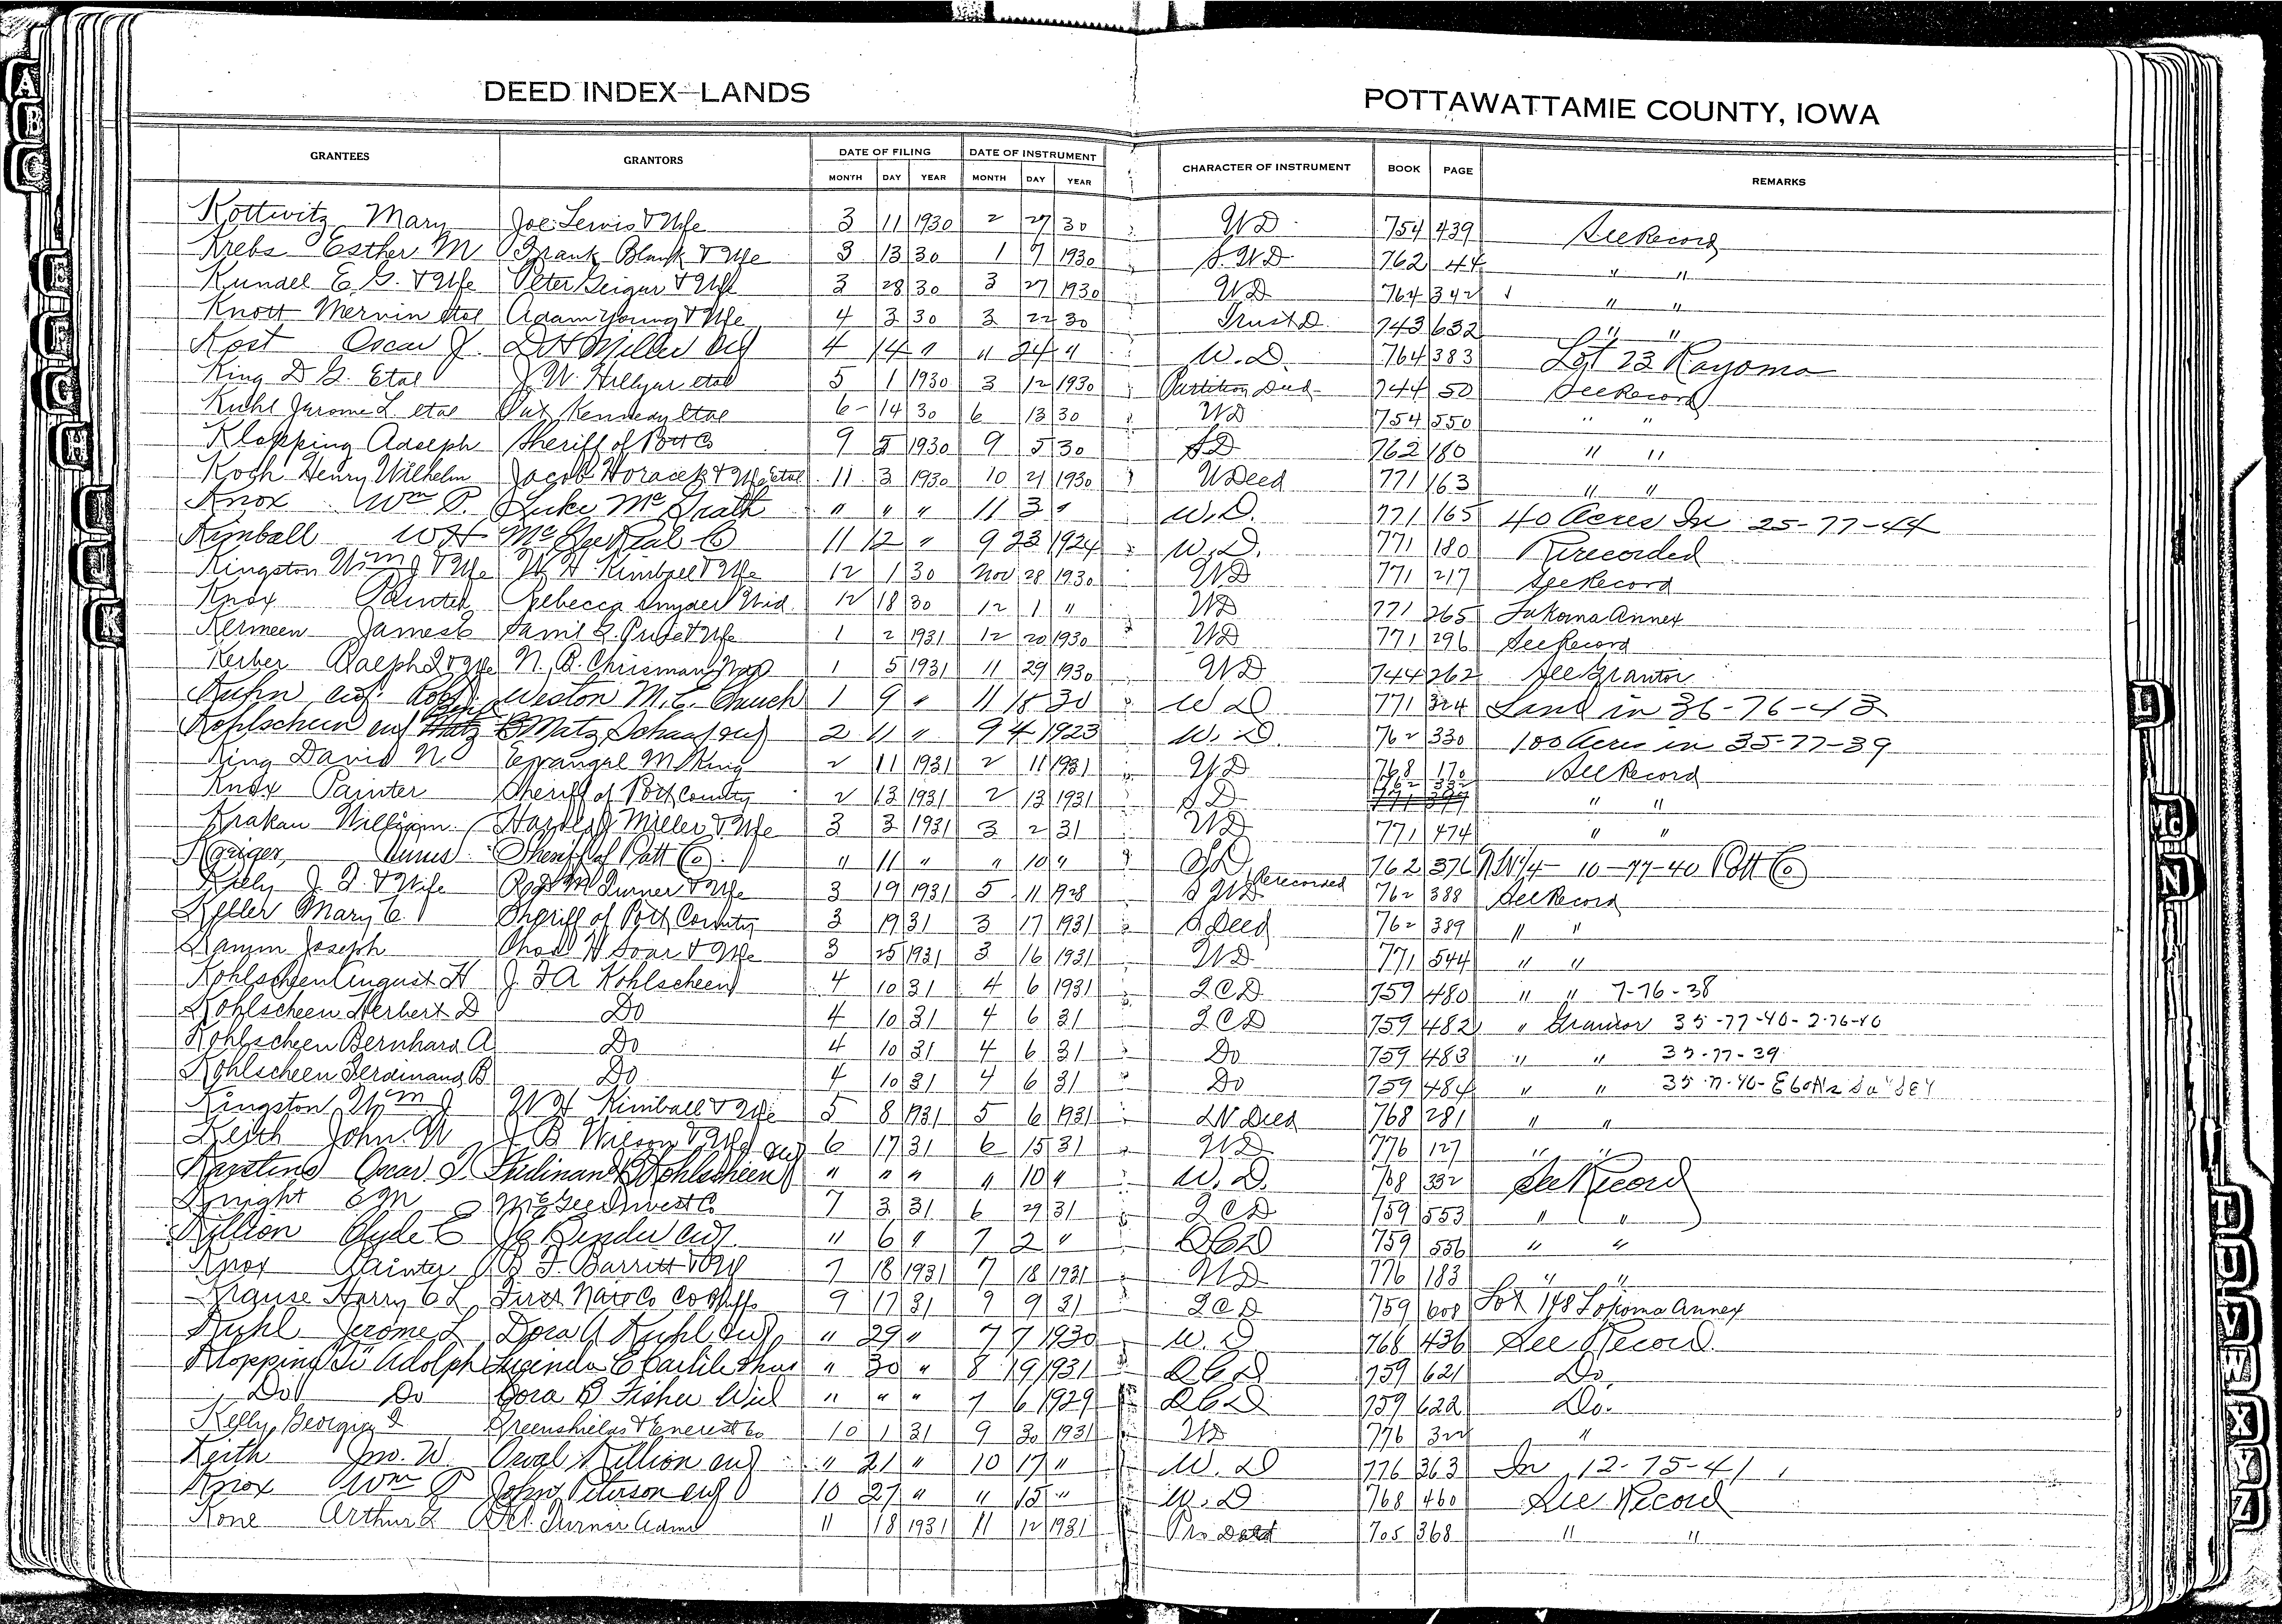 DEED INDEX—LANDS
POTTAWATTAMIE COUNTY, IOWA
GRANTEES GRANTORS DATE OF FILING DATE OF INSTRUMENT CHARACTER OF INSTRUMENT BOOK PAGE REMARKS
MONTH DAY YEAR MONTH DAY YEAR
Kottwitz Mary Joe Lewis & Wife 3 11 1930 2 27 30 WD 754 439 See Record
Krebs Esther M Frank Blank & Wife 3 13 30 1 7 1930 S. WD 762 44 " "
Kundel E. G. & Wife Peter Geiger & Wife 3 28 30 3 27 1930 WD 764 342 " "
Knott Mervin etal Adam Young & Wife 4 3 30 3 22 30 Trust D. 743 632 " "
Kost Oscar J. D H Miller 4 14 " " 24 " W. D. 764 383 Lot 23
King D G. Etal J. W. Hillyer etal 5 1 1930 3 12 1930 Partition Deed 744 50 See Record
Kuhl Jerome L. etal Pat Kennedy Etal 6 - 14 30 6 13 30 WD 754 550 " "
Klopping Adolph Sheriff of Pott Co 9 5 1930 9 5 30 SD 762 180 " "
Koch Henry Wilhelm Jacob Horacek & Wife Etal 11 3 1930 10 21 1930 W Deed 771 163 " "
Knox Wm P. Luke McGrath " " " 11 3 " W. D. 771 165 40 Acres In 25-77-44
Kimball W H McGee Real Co 11 12 " 9 23 1924 W. D. 771 180 Rerecorded
Kingston Wm J & Wife W. H. Kimball & Wife 12 1 30 Nov 28 1930 WD 771 217 See Record
Knox Painter Rebecca Snyder Wid 12 18 30 12 1 " WD 771 265 Annex
Kermeen James E & Wife 1 2 1931 12 20 1930 WD 771 296 See Record
Kerber Ralph & Wife N. B. Chrisman 1 5 1931 11 29 1930 WD 744 262 See Grantor
Kuhn Weston M. E. Church 1 9 " 11 18 30 W D 771 324 Land in 36-76-43
Kohlscheen Matz Schaaf 2 11 " 9 4 1923 W. D. 762 330 100 Acres in 35-77-39
King David N. M King 2 11 1931 2 11 1931 WD 768 170 See Record
Knox Painter Sheriff of Pott County 2 13 1931 2 13 1931 SD 762 332 " "
Krakau William Harold J Miller & Wife 3 3 1931 3 2 31 WD 771 474 " "
Sheriff of Pott Co. " 11 " " 10 " S D. 762 376 NW 1/4 10-77-40 Pott Co
& Wife M Turner & Wife 3 19 1931 5 11 1928 S WD Rerecorded 762 388 See Record
Keller Mary C. Sheriff of Pott County 3 19 31 3 17 1931 S Deed 762 389 " "
Kamm Joseph Chas H & Wife 3 25 1931 3 16 1931 WD 771 544 " "
Kohlscheen August H J. F A Kohlscheen 4 10 31 4 6 1931 Q C D 759 480 " " 7-76-38
Kohlscheen Herbert D Do 4 10 31 4 6 31 Q C D 759 482 " Grantor 35-77-40-2-76-40
Kohlscheen Bernhard A Do 4 10 31 4 6 31 Do 759 483 " " 35-77-39
Kohlscheen Ferdinand B Do 4 10 31 4 6 31 Do 759 484 " " 35-77-40-
Kingston Wm J W H Kimball & Wife 5 8 1931 5 6 1931 W Deed 768 281 " "
Keith John W J B Wilson & Wife 6 17 31 6 15 31 WD 776 127 " "
Karstens Oscar Ferdinand B Kohlscheen " " " " 10 " W. D. 768 332 See Record
Knight E M McGee Invest Co 7 3 31 6 29 31 Q C D 759 553 " "
Killion Clyde E J C Bender " 6 " 7 2 " Q C D 759 556 " "
Knox Painter B F. Barritt & Wife 7 18 1931 7 18 1931 WD 776 183 " "
Krause Harry C L First 9 17 31 9 9 31 Q C D 759 608 Lot 148 Annex
Kuhl Jerome L Dora A Kuhl " 29 " 7 7 1930 W. D 768 436 See Record.
Klopping Adolph Lucinda E Carlile " 30 " 8 19 1931 Q C D 759 621 Do.
Do Do Cora B Fisher Wid " " " 7 6 1929 Q C D 759 622 Do.
Kelly Georgia Greenshields & Everest Co 10 1 31 9 30 1931 WD 776 322 "
Keith Jno. W. Orval Killion " 21 " 10 17 " W. D 776 363 In 12-75-41
Knox Wm P John Peterson 10 27 " " 15 " W. D 768 460 See Record
Kone Arthur Turner Adm 11 18 1931 11 12 1931 705 368 " "
A
B
C
E
F
G
H
I
J
K
L
Mc
N
T
U
V
W
X
Y
Z